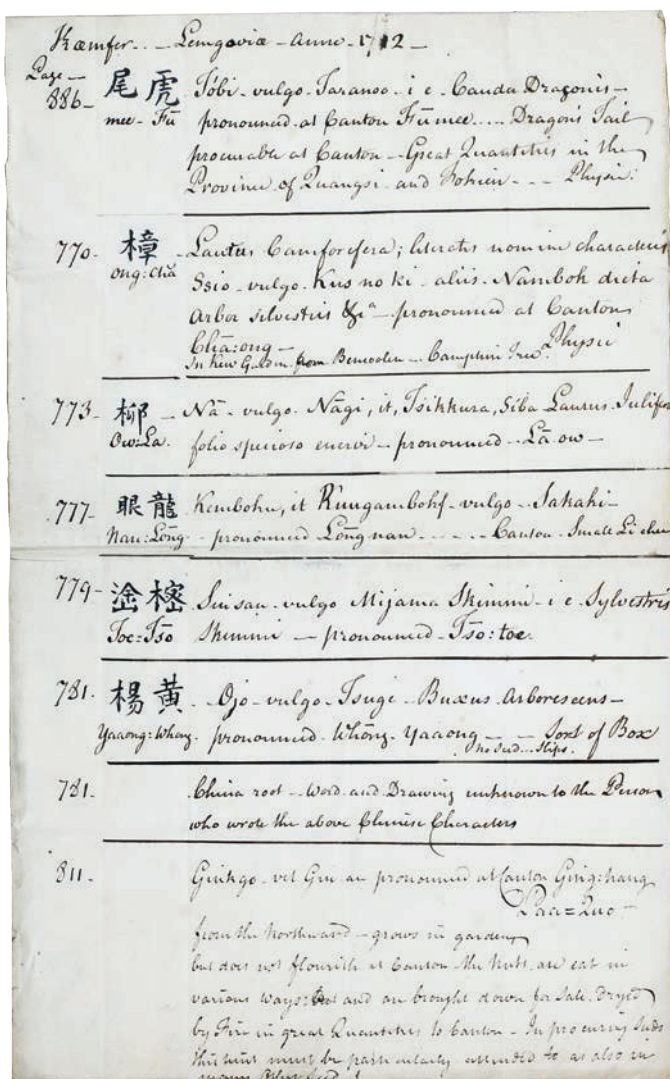 Kæmfer - Lemgoviæ - Anno - 1712 -
Page -
886 - 尾虎 Tóbi - vulgo - Taranoo - i e - Cauda Draconis -
mee - Fū pronounced at Canton Fūmee .... Dragons Tail
procurable at Canton - Great Quantities in the
Province of Quangsi and Fokien - - - Physic:
770 - 樟 - Laurus Camforifera; literatis nomine characteris
ong: chā Ssio - vulgo - Kus no ki - aliis - Nambok dicta
Arbor silvestris &c - pronounced at Canton
Chā: ong - Physic
In Kew Garden from - Camphire Tree
773 - 榔 - Nā - vulgo - Nāgi, it, Tsikkura, Siba Laurus Julifera
Ow: La. folio specioso enervi - pronounced - Lā ow -
777 - 眼龍 Kemboku, it Ruugambokf - vulgo - Sakaki -
Nan: Lōng - pronounced Lōng nan - - - - - Canton - Small Li chee
779 - 榓 Suisan - vulgo Mijama Skimmi - i e - Sylvestris
Toe = Tso Skimmi - pronounced - Tso: toe.
781 - 楊黃 - Ojo - vulgo - Tsuge - Buxus arborescens -
Yaaong: Whang. pronounced - Whōng - Yaaong - - Sort of Box
no Seed... Slips.
781 - China root - Word and Drawing unknown to the Person
who wrote the above Chinese Characters
811 - Ginkgo - vel Gin an pronounced at Canton Ging: hang
Paa = Quo -
from the Northward - grows in gardens
but does not flourish at Canton - the Nutts are eat in
various ways: and are brought down for Sale - Dryed
by Fire in great Quantities to Canton - In procuring Seeds
this hint must be particularly attended to as also in
many other